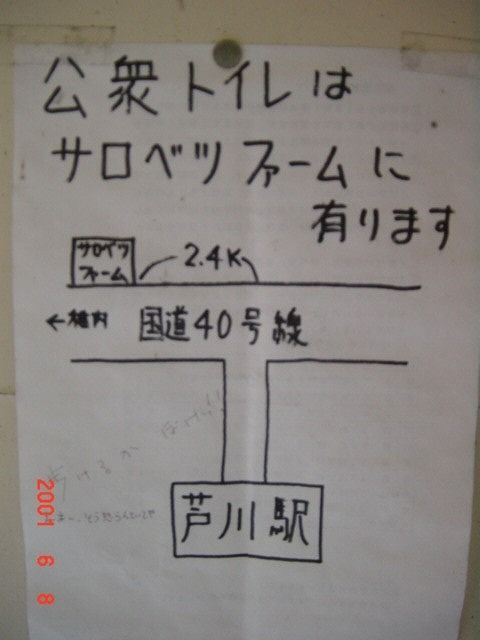 公衆トイレは
サロベツファームに
有ります
サロベツ
ファーム
2.4K
←稚内
国道40号線
芦川駅
歩けるか ぼけっ!!
2001 6 8